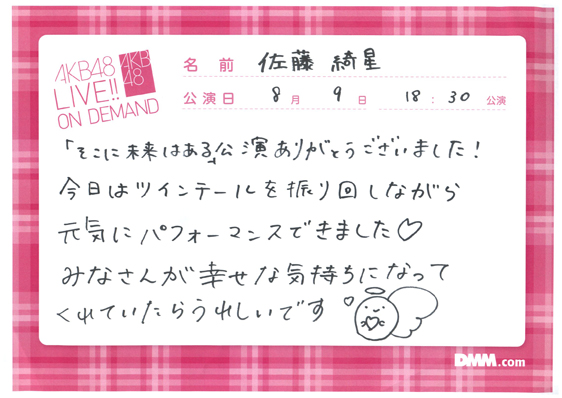 AKB48
LIVE!!
ON DEMAND
AKB
48
名前 佐藤 綺星
公演日 8月 9日 18:30 公演
「そこに未来はある」公演ありがとうございました!
今日はツインテールを振り回しながら
元気にパフォーマンスできました♡
みなさんが幸せな気持ちになって
くれていたらうれしいです
DMM.com